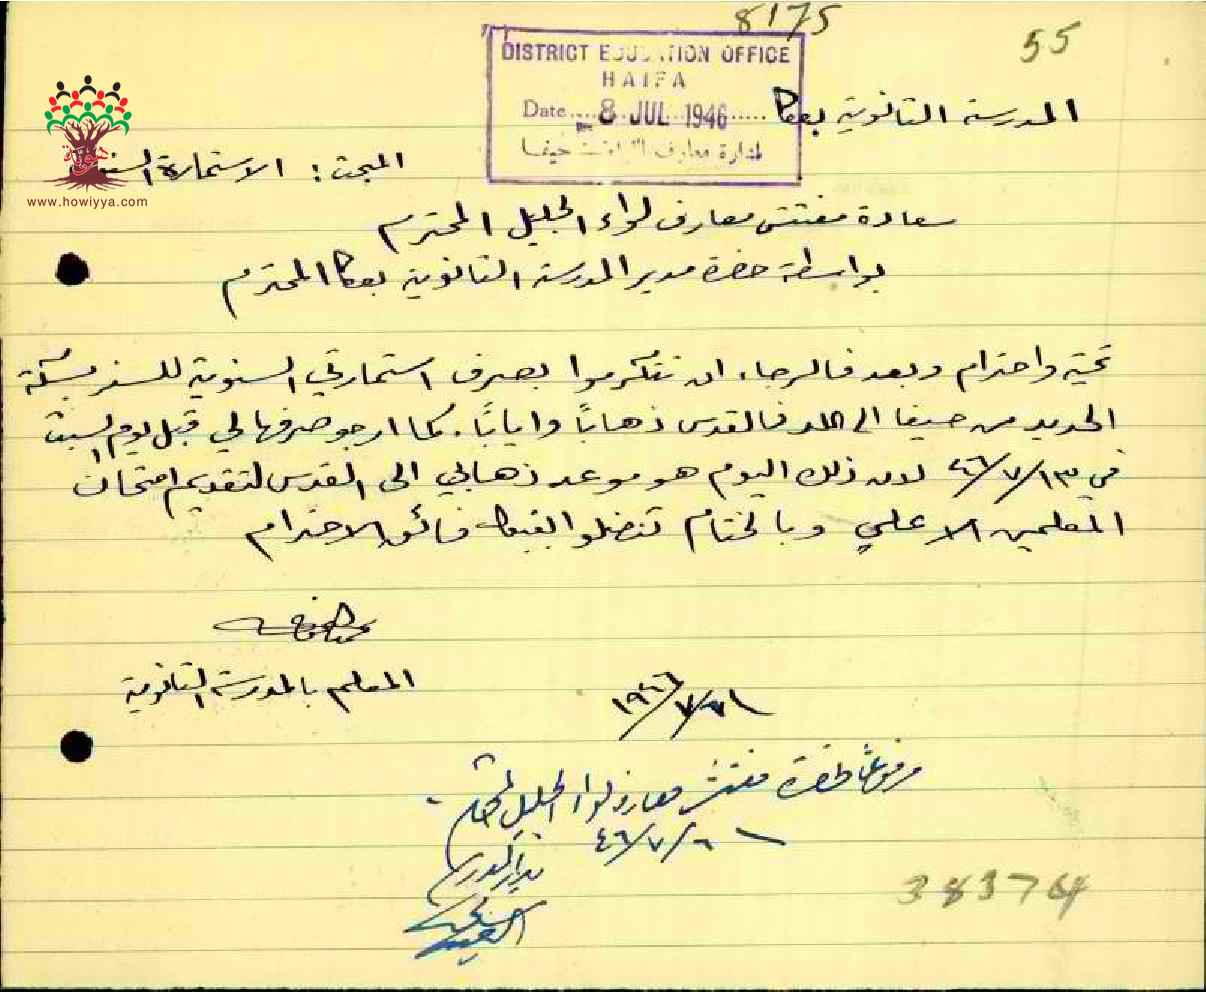 8175
55
DISTRICT EDUCATION OFFICE
HAIFA
Date.... 8 JUL 1946 .....
حيفا معارف لدارة
المدرسة الثانوية بعكا
المبحث : الاستمارة
www.howiyya.com
سعادة مفتش معارف لواء الجليل المحترم
بواسطة حضرة مدير المدرسة الثانوية بعكا المحترم
تحية واحترام وبعد فالرجاء ان تتكرموا بصرف استمارتي السنوية للسفر بسكة
الحديد من حيفا الى اللد فالقدس ذهاباً واياباً. كما ارجو صرفها لي قبل يوم السبت
في ١٣/٧/٤٦ لان ذلك اليوم هو موعد ذهابي الى القدس لتقديم امتحان
المعلمين الاعلى وبالختام تفضلوا بقبول فائق الاحترام
المعلم بالمدرسة الثانوية
١٩٤٦/٧/
مرفوعة لحضرة مفتش معارف لواء الجليل المحترم
٤٦/٧/٦
38374